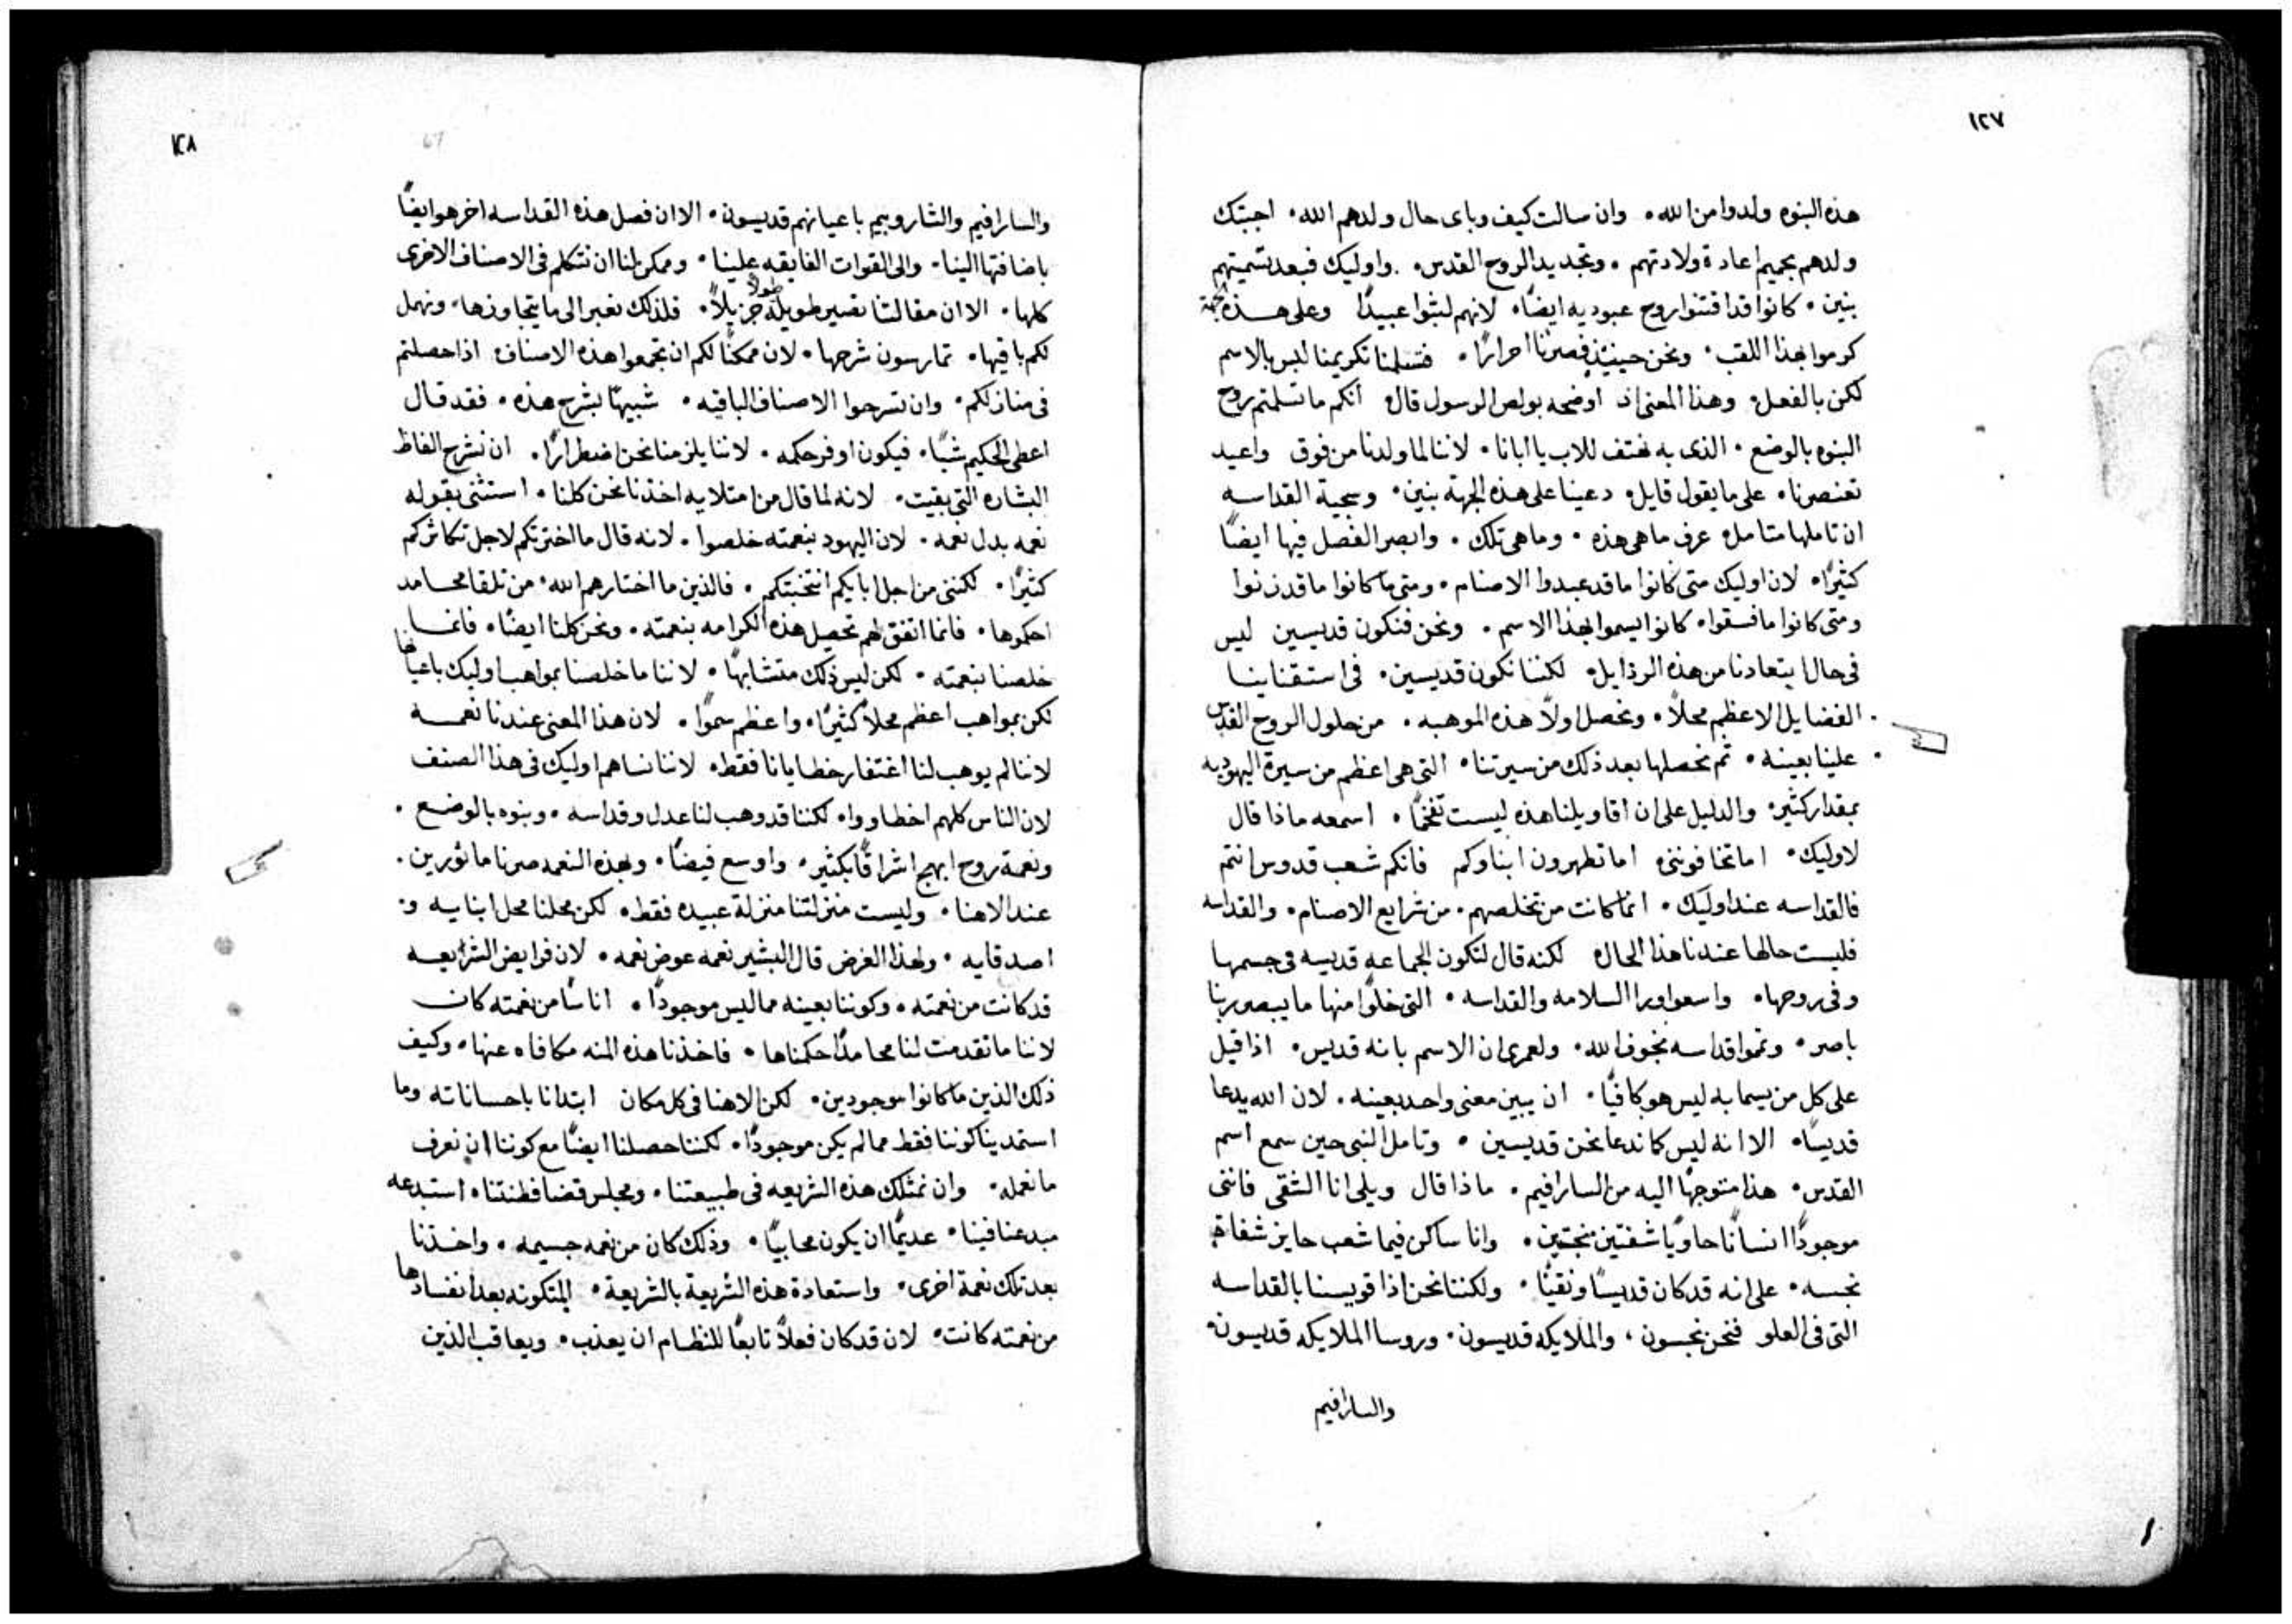 ١٢٧
هذه البنوه ولدوا من الله. وان سالت كيف وباى حال ولدهم الله. اجبتك
ولدهم بحميم اعادة ولادتهم. وتجديد الروح القدس. واوليك فبعد تسميتهم
بنين. كانوا قد اقتنوا روح عبوديه ايضًا. لانهم لبثوا عبيدًا وعلى هذه الجهة
كرموا بهذا اللقب. ونحن حينيذ فصرنا احرارًا. فتسلمنا تكريمنا ليس بالاسم
لكن بالفعل. وهذا المعنى اذ اوضحه بولص الرسول قال انكم ما تسلمتم روح
البنوه بالوضع. الذى به نهتف للاب يا ابانا. لاننا لما ولدنا من فوق واعيد
تعنصرنا. على ما يقول قايل. دعينا على هذه الجهة بنين. وسجية القداسه
ان تاملها متامل عرف ما هى هذه. وما هى تلك. وابصر الفصل فيها ايضًا
كثيرًا. لان اوليك متى كانوا ما قد عبدوا الاصنام. ومتى ما كانوا ما قد زنوا
ومتى كانوا ما فسقوا. كانوا يسموا بهذا الاسم. ونحن فنكون قديسين ليس
فى حال ابتعادنا من هذه الرذايل. لكننا نكون قديسين. فى استقناينا
الفضايل الاعظم محلاً. ونحصل اولاً هذه الموهبه. من حلول الروح القدس
علينا بعينه. ثم نحصلها بعد ذلك من سيرتنا. التى هى اعظم من سيرة اليهوديه
بمقدار كثير. والدليل على ان اقاويلنا هذه ليست تفخمًا. اسمعه ماذا قال
لاوليك. اما تخافوننى اما تطهرون ابناوكم فانكم شعب قدوس انتم
فالقداسه عند اوليك. انما كانت من تخلصهم. من شرايع الاصنام. والقداسه
فليست حالها عندنا هذا الحال لكنه قال لتكون الجماعه قديسه فى جسمها
وفى روحها. واسعوا ورا السلامه والقداسه. التى خلوًا منها ما يبصر ربنا
باصر. وتموا قداسه بخوف الله. ولعمرى ان الاسم بانه قديس. اذا قيل
على كل من يسما به ليس هو كافيًا. ان يبين معنى واحد بعينه. لان الله يدعا
قديسًا. الا انه ليس كما ندعا نحن قديسين. وتامل النبى حين سمع اسم
القدس. هذا متوجهًا اليه من السارافيم. ماذا قال ويلى انا الشقى فاننى
موجودًا انسانًا حاويًا شفتين نجستين. وانا ساكن فيما شعب حايز شفاة
نجسه. على انه قد كان قديسًا ونقيًا. ولكننا نحن اذا قويسنا بالقداسه
التى فى العلو فنحن نجسون. والملايكه قديسون. وروسا الملايكه قديسون.
والسارافيم
١٢٨
67
والسارافيم والشاروبيم باعيانهم قديسون. الا ان فصل هذه القداسه اخر هو ايضًا
باضافتها الينا. والى القوات الفايقه علينا. وممكن لنا ان نتكلم فى الاصناف الاخرى
كلها. الا ان مقالتنا تصير طويله طولاً جزيلاً. فلذلك نعبر الى ما يتجاوزها. ونهمل
لكم باقيها. تمارسون شرحها. لان ممكنًا لكم ان تجمعوا هذه الاصناف اذا حصلتم
فى منازلكم. وان تشرحوا الاصناف الباقيه. شبيهًا بشرح هذه. فقد قال
اعطى الحكيم شبًا. فيكون اوفر حكمه. لاننا يلزمنا نحن اضطرارًا. ان نشرح الفاظ
البشاره التى بقيت. لانه لما قال من امتلايه اخذنا نحن كلنا. استثنى بقوله
نعمه بدل نعمه. لان اليهود بنعمته خلصوا. لانه قال ما اخترتكم لاجل تكاثركم
كثيرًا. لكننى من اجل ابايكم انتخبتكم. فالذين ما اختارهم الله من تلقا محامد
احكموها. فانما اتفق لهم تحصيل هذه الكرامه بنعمته. ونحن كلنا ايضًا. فانما
خلصنا بنعمته. لكن ليس ذلك متشابهًا. لاننا ما خلصنا بمواهب اوليك باعيانها
لكن بمواهب اعظم محلاً كثيرًا. واعظم سموًا. لان هذا المعنى عندنا نعمه
لاننا لم يوهب لنا اغتفار خطايانا فقط. لاننا نساهم اوليك فى هذا الصنف
لان الناس كلهم اخطاووا. لكننا قد وهب لنا عدل وقداسه. وبنوه بالوضع.
ونعمة روح ابهج اشراقًا بكثير. واوسع فيضًا. وبهذه النعمه صرنا ماثورين.
عند الاهنا. وليست منزلتنا منزلة عبيده فقط. لكن محلنا محل ابنايه و.
اصدقايه. ولهذا الغرض قال البشير نعمه عوض نعمه. لان فرايض الشرايعه
قد كانت من نعمته. وكوننا بعينه مما ليس موجودًا. اناسًا من نعمته كان
لاننا ما تقدمت لنا محامدًا احكمناها. فاخذنا هذه المنه مكافاه عنها. وكيف
ذلك الذين ما كانوا موجودين. لكن الاهنا فى كل مكان ابتدانا باحساناته وما
استمدينا كوننا فقط مما لم يكن موجودًا. لكننا حصلنا ايضًا مع كوننا ان نعرف
ما نعمله. وان نمتلك هذه الشريعه فى طبيعتنا. ومجلس قضا فطنتنا. استبدعه
مبدعنا فينا. عديمًا ان يكون محابيًا. وذلك كان من نعمه جسيمه. واخذنا
بعد تلك نعمة اخرى. واستعادة هذه الشريعة بالشريعة. المتكونه بعد انفسادها
من نعمته كانت. لان قد كان فعلاً تابعًا للنظام ان يعذب. ويعاقب الذين